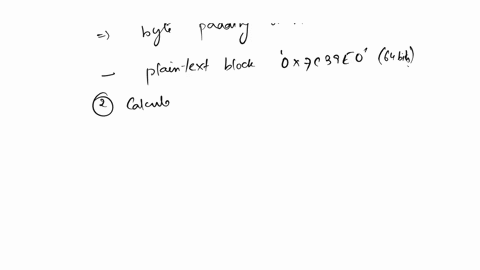 =) byte padding
— plain-text block '0x7C39E0' (64 bits)
② Calculo